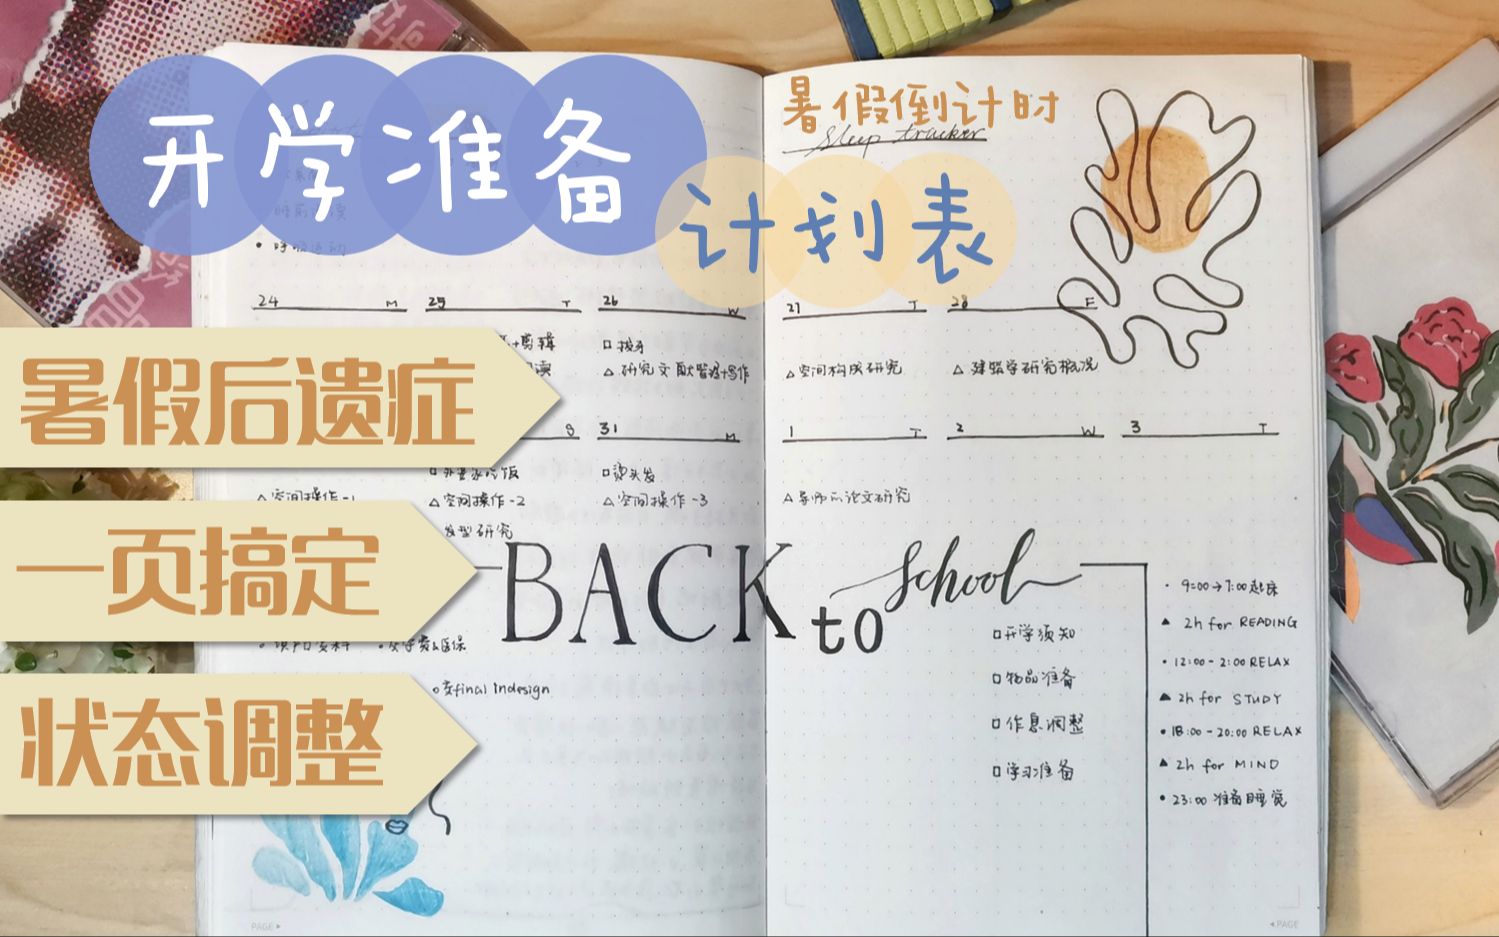 开学准备
计划表
暑假倒计时
Sleep tracker
24 M 25 T 26 W
27 T 28 F
+剪辑
□ 拔牙
△研究文献管理+写作
△空间构成研究
△ 建筑学研究概况
暑假后遗症
S 31 M
1 T 2 W 3 T
□外婆家吃饭
□烫头发
△空间操作-1
△空间操作-2
△空间操作-3
△导师の论文研究
发型研究
一页搞定
BACK to School
•交学费&医保
○交final Indesign
□开学须知
□物品准备
□作息调整
□学习准备
• 9:00→7:00起床
▲ 2h for READING
• 12:00-2:00 RELAX
▲ 2h for STUDY
• 18:00-20:00 RELAX
▲ 2h for MIND
• 23:00 准备睡觉
状态调整
PAGE
PAGE